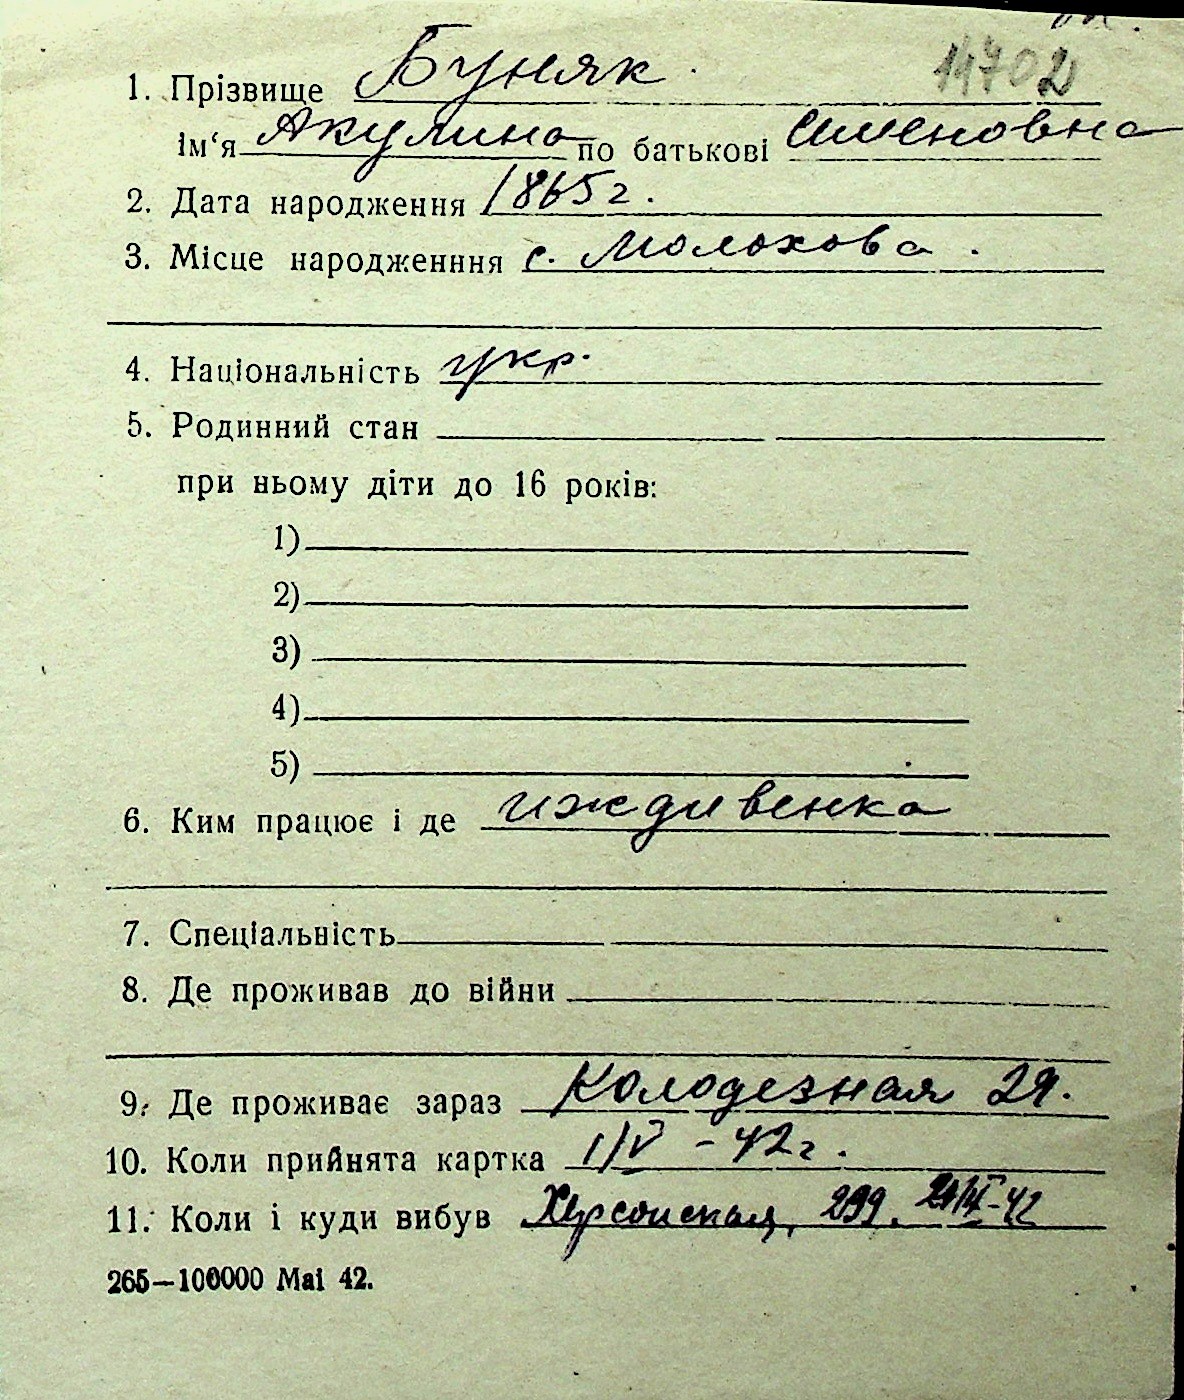 11702
1. Прізвище Буняк
ім‘я Акулина по батькові Сименовна
2. Дата народження 1865 г.
3. Місце народженння с. Молохова.
4. Національність укр.
5. Родинний стан
при ньому діти до 16 років:
1)
2)
3)
4)
5)
6. Ким працює і де иждивенка
7. Спеціальність
8. Де проживав до війни
9. Де проживає зараз Колодезная 29.
10. Коли прийнята картка 1/V – 42 г.
11. Коли і куди вибув Херсонская, 299. 24/IX-42
265—100000 Mai 42.